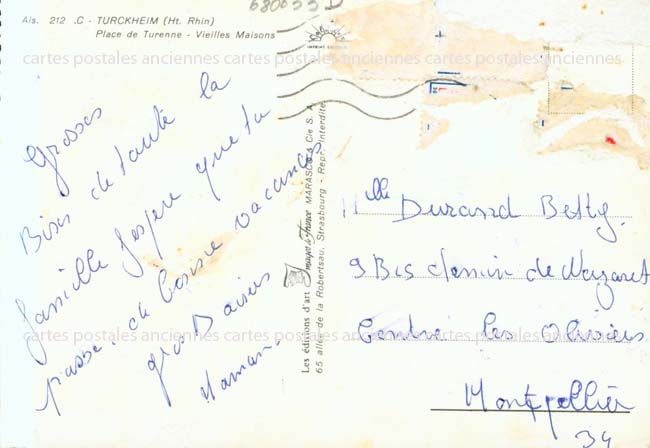 Als. 212 .C - TURCKHEIM (Ht. Rhin)
Place de Turenne - Vieilles Maisons
680033 D
cartes postales anciennes cartes postales anciennes cartes postales anciennes
Grosses
Bises de toute la
famille j'espère que tu
passe de bonne vacances
gros Baisers
Maman.
Les éditions d'art Images de France MARASCO & Cie S. A.
65 allée de la Robertsau, Strasbourg - Repr. Interdite
Mlle Durand Betty
9 Bis chemin de Nazaret
Centre les Oliviers
Montpellier
34
cartes postales anciennes cartes postales anciennes cartes postales anciennes